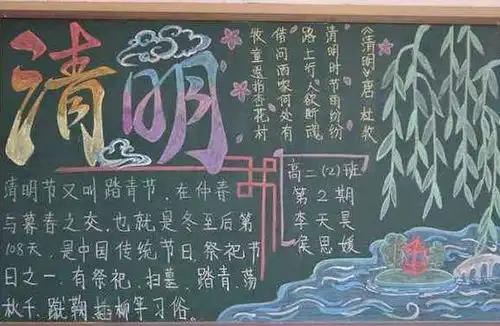 清明
《清明》唐 杜牧
清明时节雨纷纷
路上行人欲断魂。
借问酒家何处有
牧童遥指杏花村
高二(2)班
第2期
李天昊
侯思媛
清明节又叫踏青节，在仲春
与暮春之交，也就是冬至后第
108天，是中国传统节日，祭祀节
日之一，有祭祀，扫墓，踏青，荡
秋千，蹴鞠，插柳等习俗。